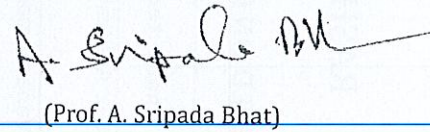 A. Sripada Bhat
(Prof. A. Sripada Bhat)